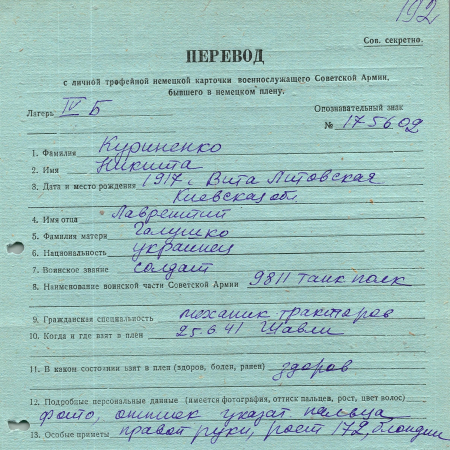 192
Сов. секретно.
ПЕРЕВОД
с личной трофейной немецкой карточки военнослужащего Советской Армии,
бывшего в немецком плену.
Лагерь IV Б Опознавательный знак
№ 175602
1. Фамилия Куриненко
2. Имя Никита
3. Дата и место рождения 1917 г. Вита Литовская
Киевская обл
4. Имя отца Лаврентий
5. Фамилия матери Галушко
6. Национальность украинец
7. Воинское звание солдат
8. Наименование воинской части Советской Армии 9811 танк полк
9. Гражданская специальность механик тракторов
10. Когда и где взят в плен 25.6.41 Шавли
11. В каком состоянии взят в плен (здоров, болен, ранен) здоров
12. Подробные персональные данные (имеется фотография, оттиск пальца, рост, цвет волос)
фото, оттиск указат пальца
13. Особые приметы правой руки, рост 172, блондин